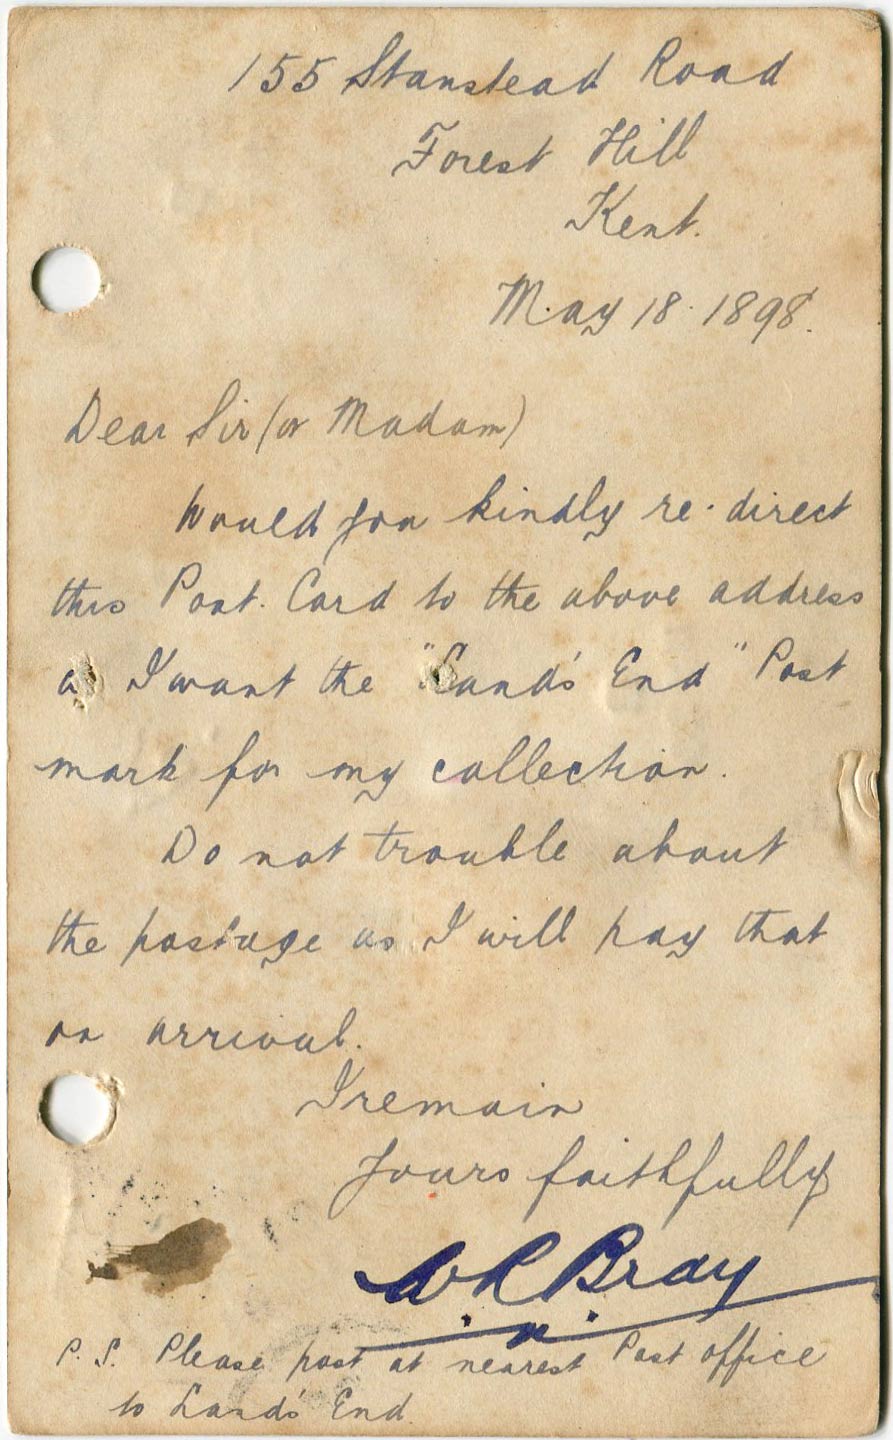 155 Stanstead Road
Forest Hill
Kent.
May 18. 1898.
Dear Sir (or Madam)
Would you kindly re-direct
this Post. Card to the above address
as I want the "Land's End" Post
mark for my collection.
Do not trouble about
the postage as I will pay that
on arrival.
I remain
Yours faithfully
W R Bray
P.S. Please post at nearest Post office
to Land's End.